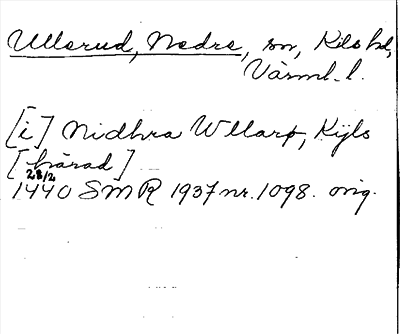 Ullerud, Nedre, sn, Kils hd,
Värml. l.
[i] Nidhra Wllarþ, Kijls
[härad]
28/2
1440 SMR 1937 nr. 1098. orig.